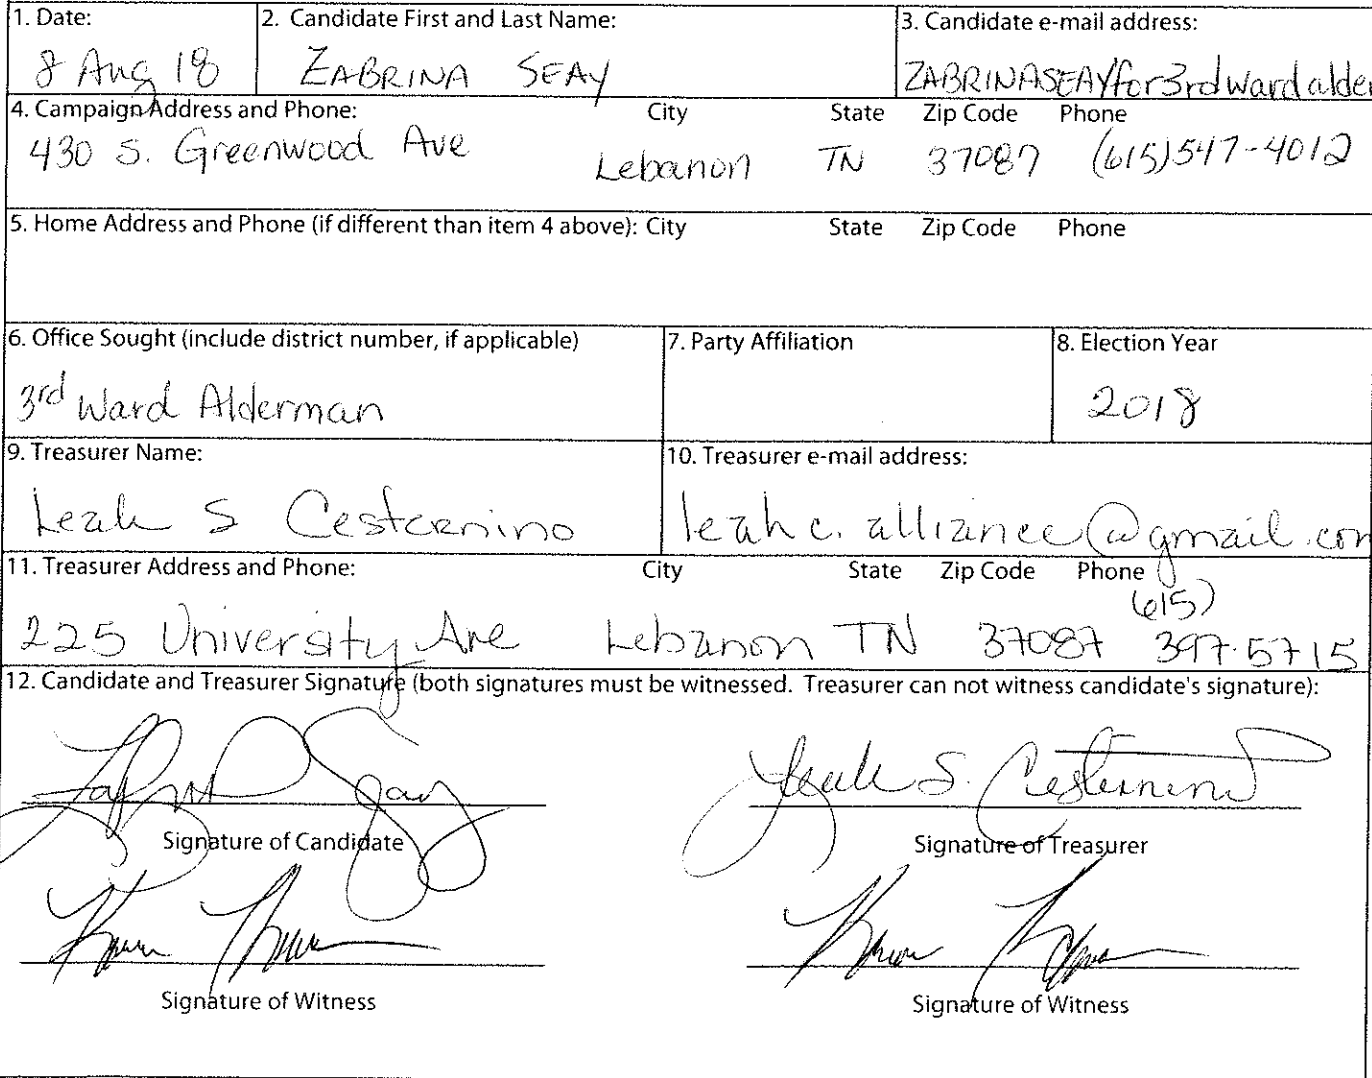 1. Date: 2. Candidate First and Last Name: 3. Candidate e-mail address:
8 Aug 18 ZABRINA SEAY ZABRINASEAYfor3rdwardalder
4. Campaign Address and Phone: City State Zip Code Phone
430 S. Greenwood Ave Lebanon TN 37087 (615)547-4012
5. Home Address and Phone (if different than item 4 above): City State Zip Code Phone
6. Office Sought (include district number, if applicable) 7. Party Affiliation 8. Election Year
3rd Ward Alderman 2018
9. Treasurer Name: 10. Treasurer e-mail address:
Leah S Cesternino leahc.alliance@gmail.com
11. Treasurer Address and Phone: City State Zip Code Phone
(615)
225 University Ave Lebanon TN 37087 397-5715
12. Candidate and Treasurer Signature (both signatures must be witnessed. Treasurer can not witness candidate's signature):
Leah S. Cesternino
Signature of Candidate Signature of Treasurer
Signature of Witness Signature of Witness